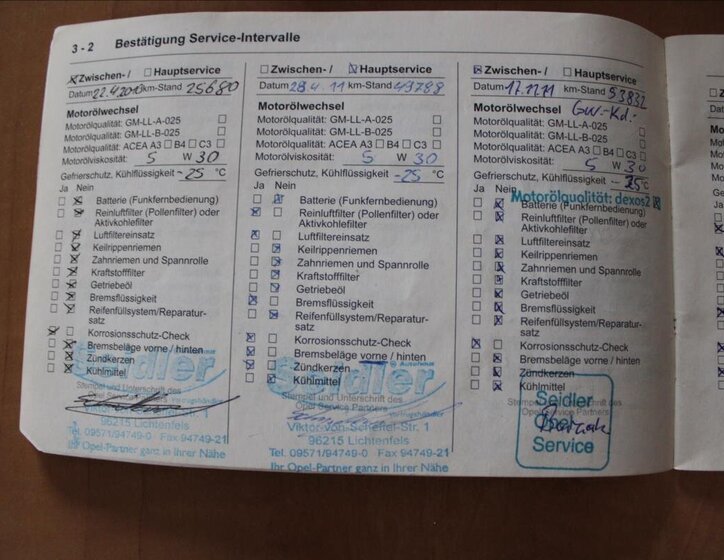 3 - 2 Bestätigung Service-Intervalle
Zwischen- / Hauptservice
Datum 22.4.2010 km-Stand 25680
Motorölwechsel
Motorölqualität: GM-LL-A-025
Motorölqualität: GM-LL-B-025
Motorölqualität: ACEA A3 B4 C3
Motorölviskosität: 5 W 30
Gefrierschutz, Kühlflüssigkeit -25 °C
Ja Nein
Batterie (Funkfernbedienung)
Reinluftfilter (Pollenfilter) oder
Aktivkohlefilter
Luftfiltereinsatz
Keilrippenriemen
Zahnriemen und Spannrolle
Kraftstofffilter
Getriebeöl
Bremsflüssigkeit
Reifenfüllsystem/Reparatur-
satz
Korrosionsschutz-Check
Bremsbeläge vorne / hinten
Zündkerzen
Kühlmittel
Seidler
Stempel und Unterschrift des
Opel Service Partners
Viktor-von-Scheffel-Str. 1
96215 Lichtenfels
Tel. 09571/94749-0 Fax 94749-21
Ihr Opel-Partner ganz in Ihrer Nähe
Zwischen- / Hauptservice
Datum 28.4.11 km-Stand 49788
Motorölwechsel
Motorölqualität: GM-LL-A-025
Motorölqualität: GM-LL-B-025
Motorölqualität: ACEA A3 B4 C3
Motorölviskosität: 5 W 30
Gefrierschutz, Kühlflüssigkeit -25 °C
Ja Nein
Batterie (Funkfernbedienung)
Reinluftfilter (Pollenfilter) oder
Aktivkohlefilter
Luftfiltereinsatz
Keilrippenriemen
Zahnriemen und Spannrolle
Kraftstofffilter
Getriebeöl
Bremsflüssigkeit
Reifenfüllsystem/Reparatur-
satz
Korrosionsschutz-Check
Bremsbeläge vorne / hinten
Zündkerzen
Kühlmittel
Autohaus
Seidler
Stempel und Unterschrift des
Opel Service Partners
Vertragshändler
Viktor-von-Scheffel-Str. 1
96215 Lichtenfels
Tel. 09571/94749-0 Fax 94749-21
Ihr Opel-Partner ganz in Ihrer Nähe
Zwischen- / Hauptservice
Datum 17.11.11 km-Stand 53832
Motorölwechsel Gw.-Kd.-
Motorölqualität: GM-LL-A-025
Motorölqualität: GM-LL-B-025
Motorölqualität: ACEA A3 B4 C3
Motorölviskosität: 5 W 30
Gefrierschutz, Kühlflüssigkeit °C
Ja Nein
Motorölqualität: dexos2
Batterie (Funkfernbedienung)
Reinluftfilter (Pollenfilter) oder
Aktivkohlefilter
Luftfiltereinsatz
Keilrippenriemen
Zahnriemen und Spannrolle
Kraftstofffilter
Getriebeöl
Bremsflüssigkeit
Reifenfüllsystem/Reparatur-
satz
Korrosionsschutz-Check
Bremsbeläge vorne / hinten
Zündkerzen
Kühlmittel
Stempel und Unterschrift des
Opel Service Partners
Seidler
Opel
Service